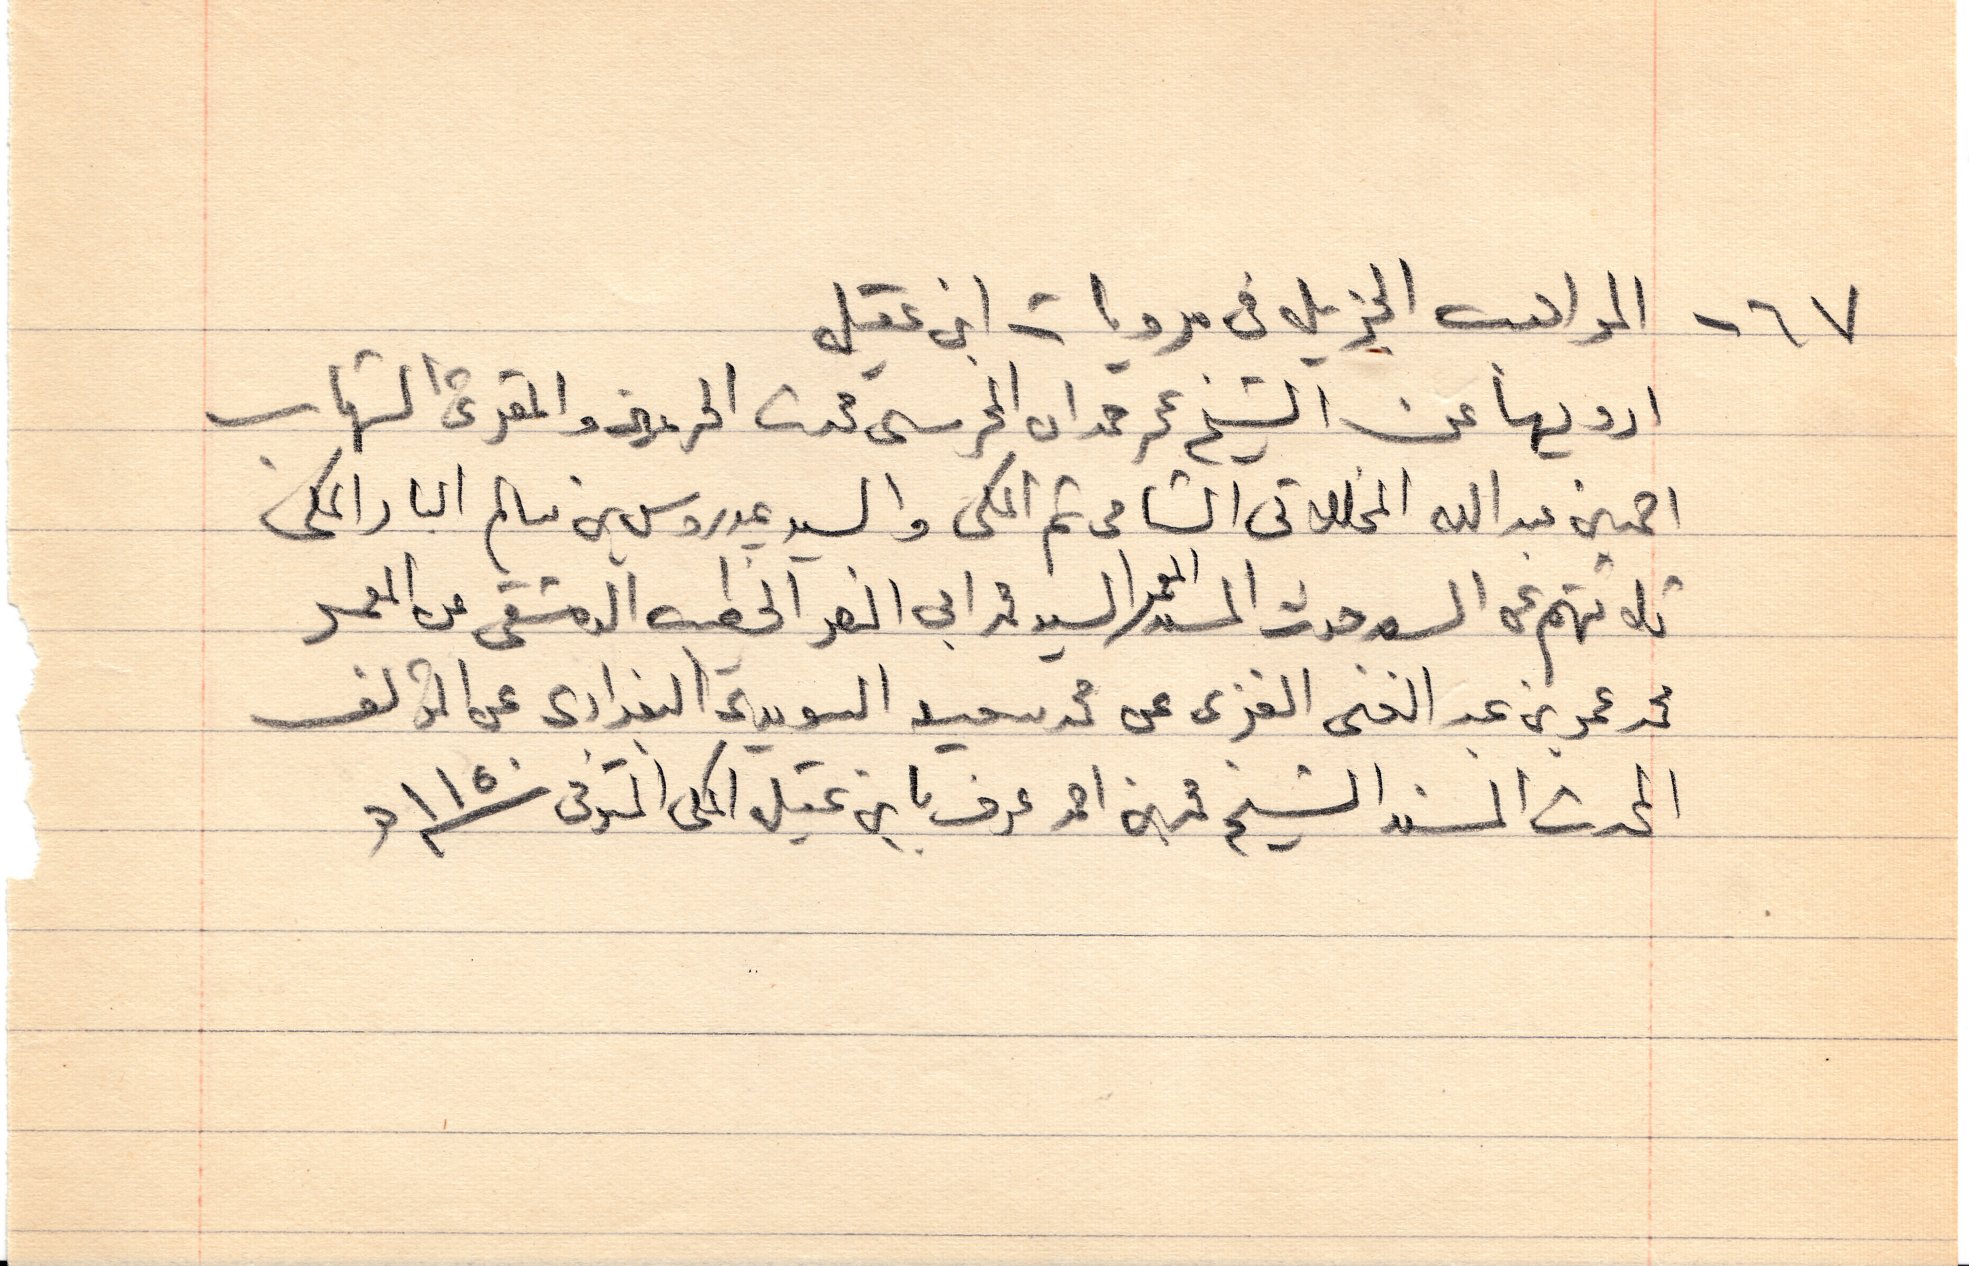 ٦٧- المواهب الجزيل في مرويات ابن عقيل
ارويها عن الشيخ عمر حمدان المحرسى محدث الحرمين والمقرئ الشهاب
احمد بن عبد الله المخللاتى الشامى ثم المكى والسيد عيدروس بن سالم البار المكى
ثلاثتهم عن المسند المعمر السيد محمد ابى النصر الخطيب الدمشقى عن المعمر
محمد عمر بن عبد الغنى الغزى عن محمد سعيد السويدى البغدادى عن المؤلف
المحدث المسند الشيخ محمد بن احمد عرف بابن عقيلة المكى المتوفى ١١٥٠ ه